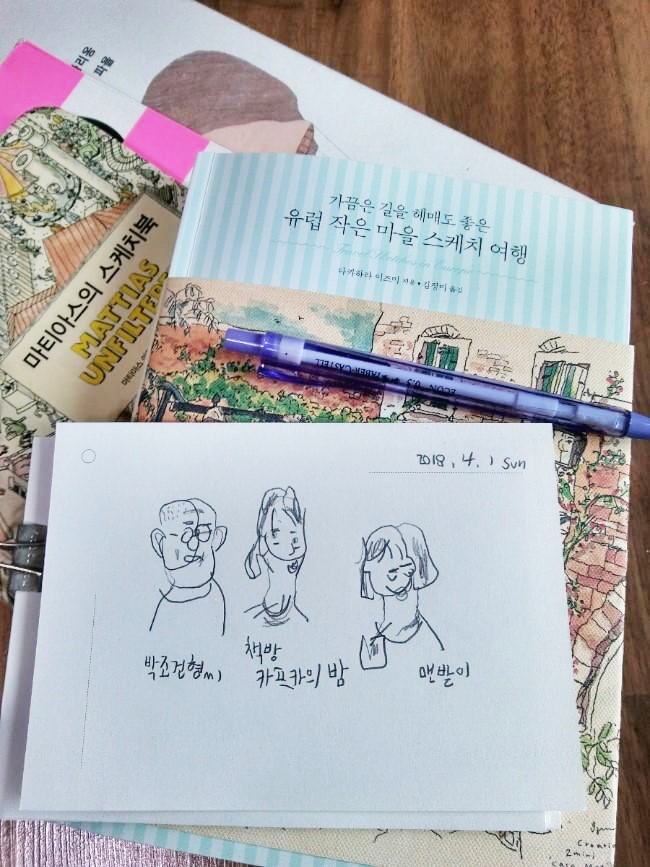 가끔은 길을 헤매도 좋은
유럽 작은 마을 스케치 여행
Travel Sketches in Europe
다카하라 이즈미 지음 • 김정미 옮김
마티아스의 스케치북
MATTIAS
UNFILTERED
ECON 0.5 FABER-CASTELL
2018. 4. 1 Sun
박조건형씨
책방
카프카의 밤
맨발이
2mini